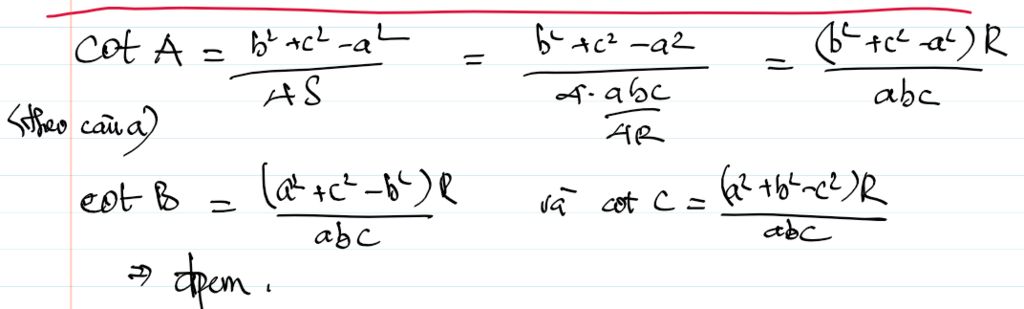 cot A = \frac{b² + c² - a²}{4S} = \frac{b² + c² - a²}{4 \cdot \frac{abc}{4R}} = \frac{(b² + c² - a²)R}{abc}
(theo câu a)
cot B = \frac{(a² + c² - b²)R}{abc} và cot C = \frac{(a² + b² - c²)R}{abc}
⇒ đpcm.